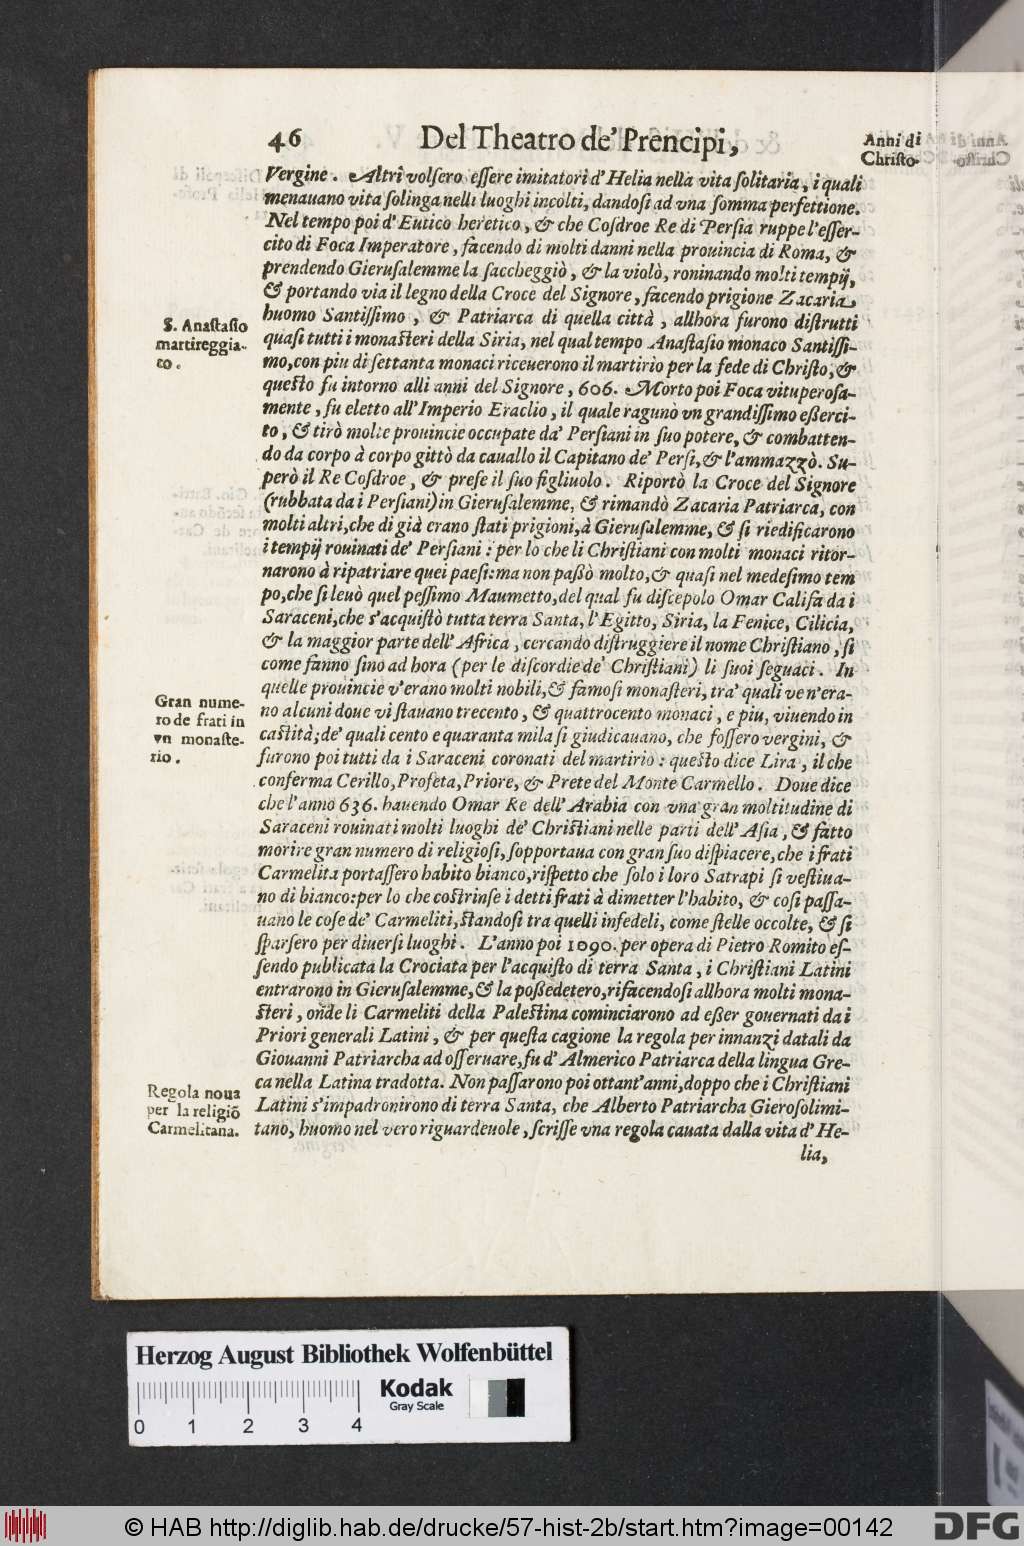 46 Del Theatro de' Prencipi, Anni di
Christo.
Vergine. Altri volsero essere imitatori d'Helia nella vita solitaria, i quali
menauano vita solinga nelli luoghi incolti, dandosi ad vna somma perfettione.
Nel tempo poi d'Eutico heretico, & che Cosdroe Re di Persia ruppe l'esser-
cito di Foca Imperatore, facendo di molti danni nella prouincia di Roma, &
prendendo Gierusalemme la saccheggiò, & la violò, roninando molti tempij,
& portando via il legno della Croce del Signore, facendo prigione Zacaria,
huomo Santissimo, & Patriarca di quella città, allhora furono distrutti
S. Anastasio
martireggia-
to.
quasi tutti i monasteri della Siria, nel qual tempo Anastasio monaco Santissi-
mo, con piu di settanta monaci riceuerono il martirio per la fede di Christo, &
questo fu intorno alli anni del Signore, 606. Morto poi Foca vituperosa-
mente, fu eletto all'Imperio Eraclio, il quale ragunò vn grandissimo esserci-
to, & tirò molte prouincie occupate da' Persiani in suo potere, & combatten-
do da corpo à corpo gittò da cauallo il Capitano de' Persi, & l'ammazzò. Su-
però il Re Cosdroe, & prese il suo figliuolo. Riportò la Croce del Signore
(rubbata da i Persiani) in Gierusalemme, & rimandò Zacaria Patriarca, con
molti altri, che di già erano stati prigioni, à Gierusalemme, & si riedificarono
i tempij rouinati de' Persiani: per lo che li Christiani con molti monaci ritor-
narono à ripatriare quei paesi: ma non passò molto, & quasi nel medesimo tem
po, che si leuò quel pessimo Maumetto, del qual fu discepolo Omar Califa da i
Saraceni, che s'acquistò tutta terra Santa, l'Egitto, Siria, la Fenice, Cilicia,
& la maggior parte dell'Africa, cercando distruggiere il nome Christiano, si
come fanno sino ad hora (per le discordie de' Christiani) li suoi seguaci. In
Gran nume-
ro de frati in
vn monaste-
rio.
quelle prouincie v'erano molti nobili, & famosi monasteri, tra' quali ve n'era-
no alcuni doue vi stauano trecento, & quattrocento monaci, e piu, viuendo in
castità; de' quali cento e quaranta mila si giudicauano, che fossero vergini, &
furono poi tutti da i Saraceni coronati del martirio: questo dice Lira, il che
conferma Cerillo, Profeta, Priore, & Prete del Monte Carmello. Doue dice
che l'anno 636. hauendo Omar Re dell'Arabia con vna gran moltitudine di
Saraceni rouinati molti luoghi de' Christiani nelle parti dell'Asia, & fatto
morire gran numero di religiosi, sopportaua con gran suo dispiacere, che i frati
Carmelita portassero habito bianco, rispetto che solo i loro Satrapi si vestiua-
no di bianco: per lo che costrinse i detti frati à dimetter l'habito, & cosi passa-
uano le cose de' Carmeliti, standosi tra quelli infedeli, come stelle occolte, & si
sparsero per diuersi luoghi. L'anno poi 1090. per opera di Pietro Romito es-
sendo publicata la Crociata per l'acquisto di terra Santa, i Christiani Latini
entrarono in Gierusalemme, & la possedetero, rifacendosi allhora molti mona-
steri, onde li Carmeliti della Palestina cominciarono ad esser gouernati da i
Priori generali Latini, & per questa cagione la regola per innanzi datali da
Giouanni Patriarcha ad osseruare, fu d'Almerico Patriarca della lingua Gre-
ca nella Latina tradotta. Non passarono poi ottant'anni, doppo che i Christiani
Regola noua
per la religiō
Carmelitana.
Latini s'impadronirono di terra Santa, che Alberto Patriarcha Gierosolimi-
tano, huomo nel vero riguardeuole, scrisse vna regola cauata dalla vita d'He-
lia,
Herzog August Bibliothek Wolfenbüttel
Kodak
Gray Scale
0 1 2 3 4
© HAB http://diglib.hab.de/drucke/57-hist-2b/start.htm?image=00142
DFG